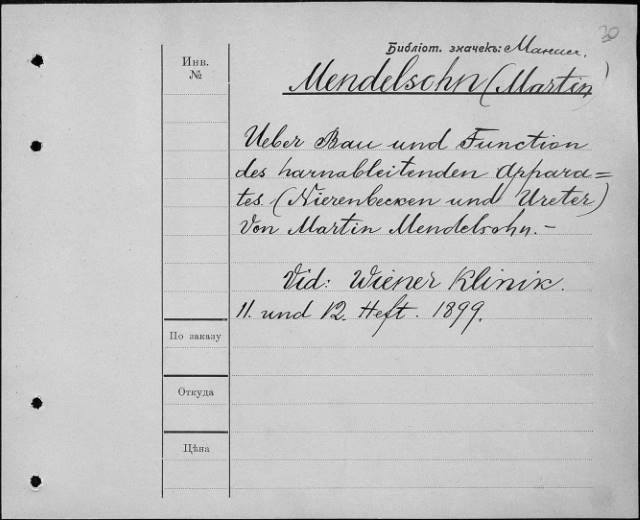 30
Библіот. значекъ:
Инв.
№
Mendelsohn (Martin)
Ueber Bau und Function
des harnableitenden Appara=
tes. (Nierenbecken und Ureter)
Von Martin Mendelsohn. –
Vid: Wiener Klinik.
11. und 12. Heft. 1899.
По заказу
Откуда
Цѣна